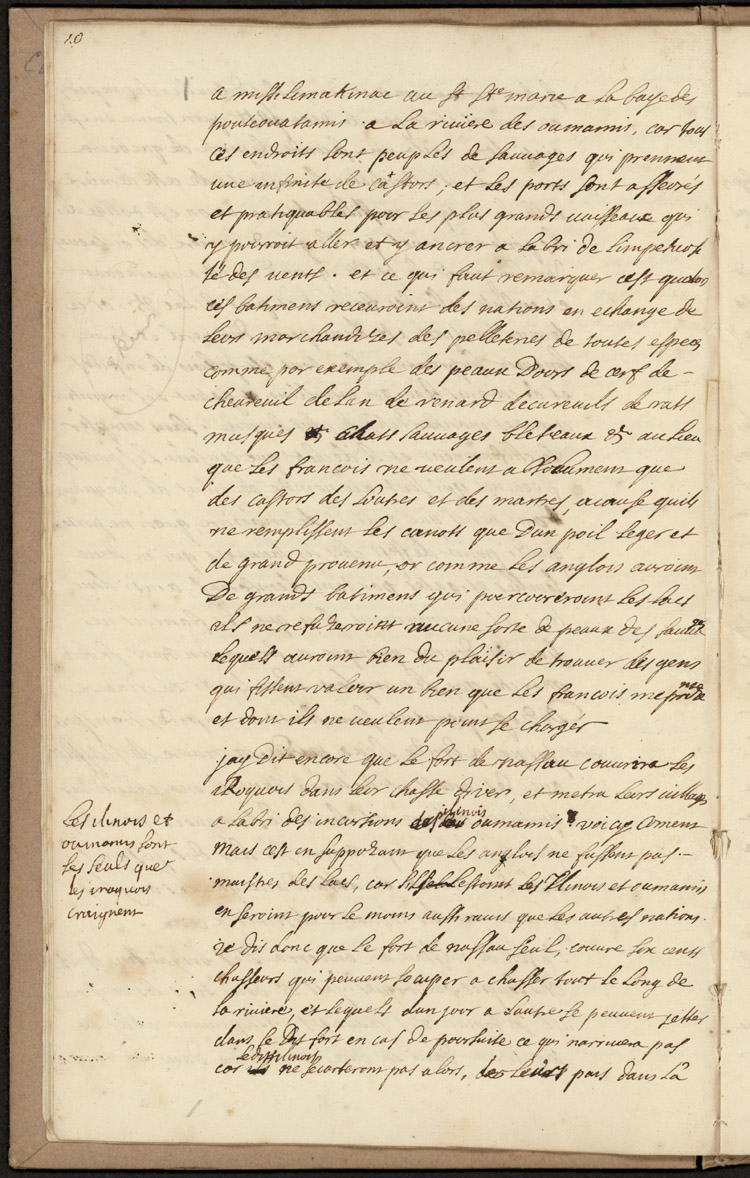 10
a missilimakinac au st ste marie a la baye des
pouteouatamis a la riviere des oumamis, car tous
ces endroits sont peuplés de sauvages qui prennent
une infinite de castors, et les ports sont asseurés
et pratiquables pour les plus grands vaisseaux qui
y pourroit aller et y ancrer a labri de limpetuosi
té des vents. et ce qui faut remarquer cest que
ces batimens recevroint des nations en echange de
leurs marchandizes des pelleteries de toutes especes
comme par exemple des peaux Dours de cerf de -
chevreuil delan de renard decureuils de rats
musqués chats sauvages bleraux & au lieu
que les francois ne veulent absolument que
des castors des loutres et des martres, acause quils
ne remplissent les canots que Dun poil leger et
de grand provenu, or comme les anglois auroint
De grands batimens qui parcoureroint les lacs
ils ne refuzeroint aucune sorte de peaux des sauvages
lequels auroint bien du plaisir de trouver des gens
qui fissent valoir un bien que les francois meprisent
et dont ils ne veulent point se charger
jay dit encore que le fort de nassau couvrira les
iroquois dans leur chasse diver, et metra leurs villages
a labri des incursions des ilinois oumamis. voicy coment
mais cest en supposant que les anglois ne fussent pas -
maistres des lacs, car sils lestoint les Ilinois et oumamis
en seroint pour le moins aussi ravis que les autres nations.
je dis donc que le fort de nassau seul, couvre six cents
chasseurs qui peuvent socuper a chasser tout le long de
la riviere, et lequels dun jour a lautre se peuvent jetter
dans le Dit fort en cas de poursuite ce qui narrivera pas
car lesdits ilinois ne secarteront pas alors, de leurs pais dans la
Les ilinois et
oumamis sont
les seuls que
les iroquois
craignent